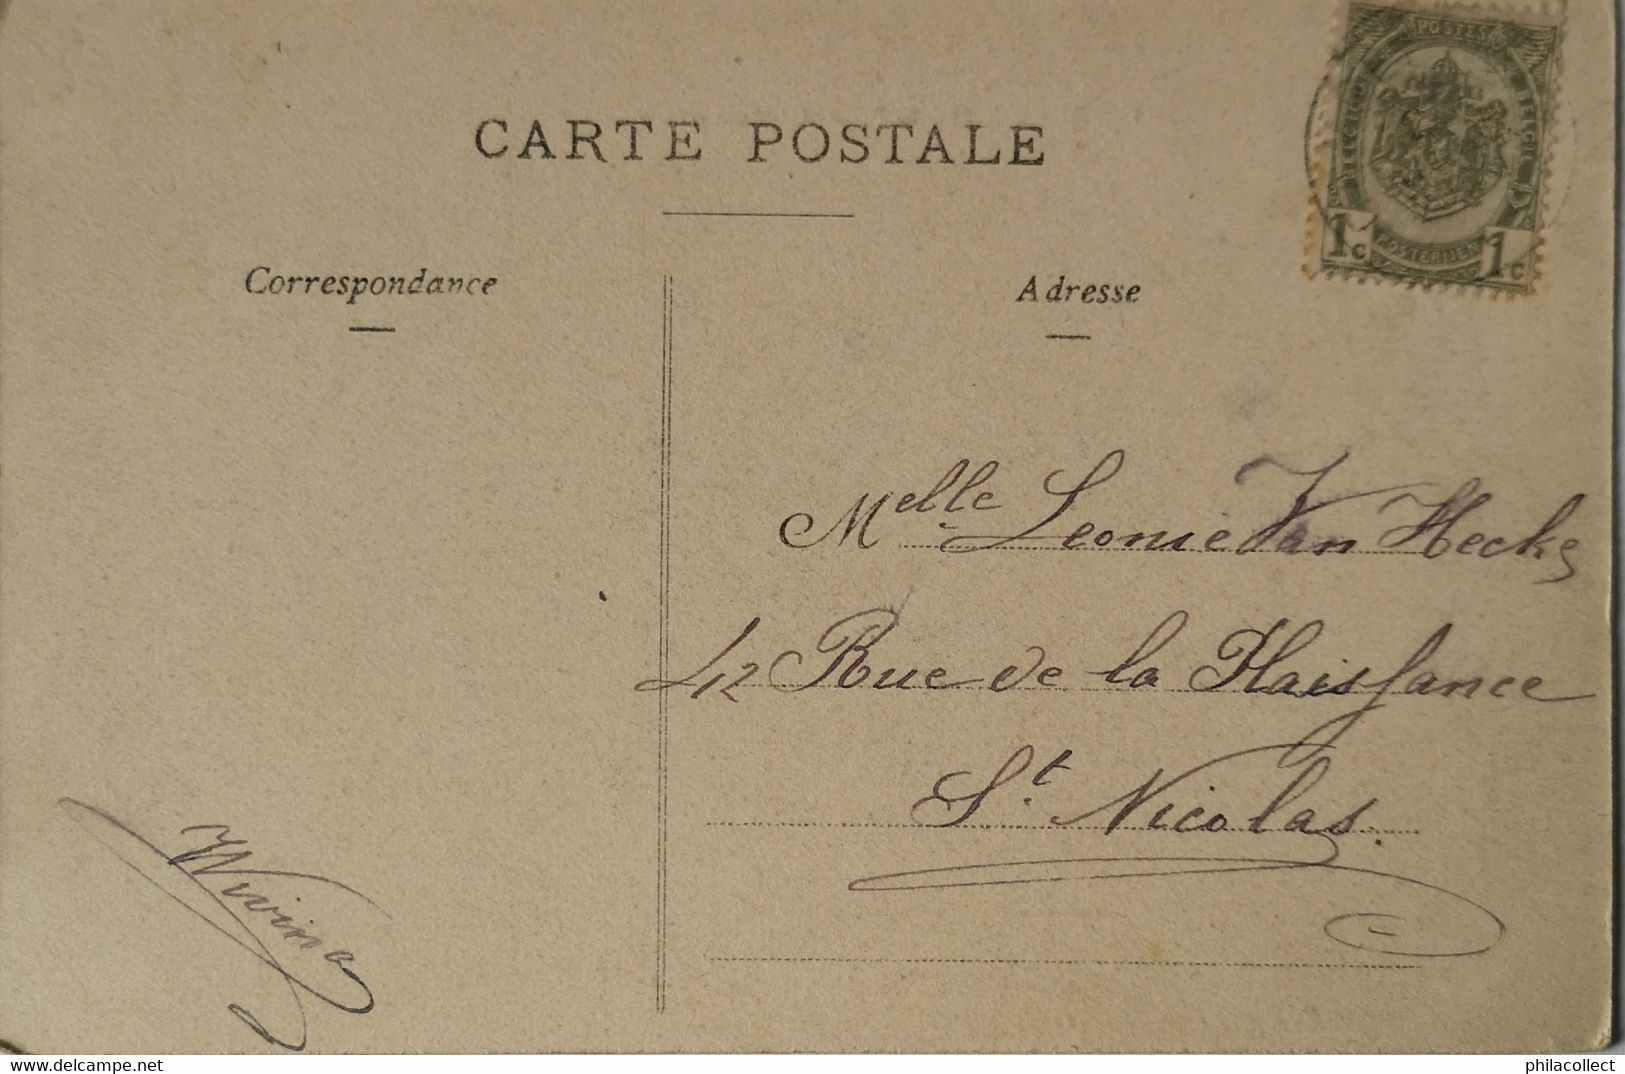 CARTE POSTALE
POSTES
BELGIQUE
BELGIË
POSTERIJEN
1c 1c
Correspondance
Adresse
Melle Leonie Van Hecke
42 Rue de la Plaisance
St. Nicolas.
Wivina
www.delcampe.net
philacollect